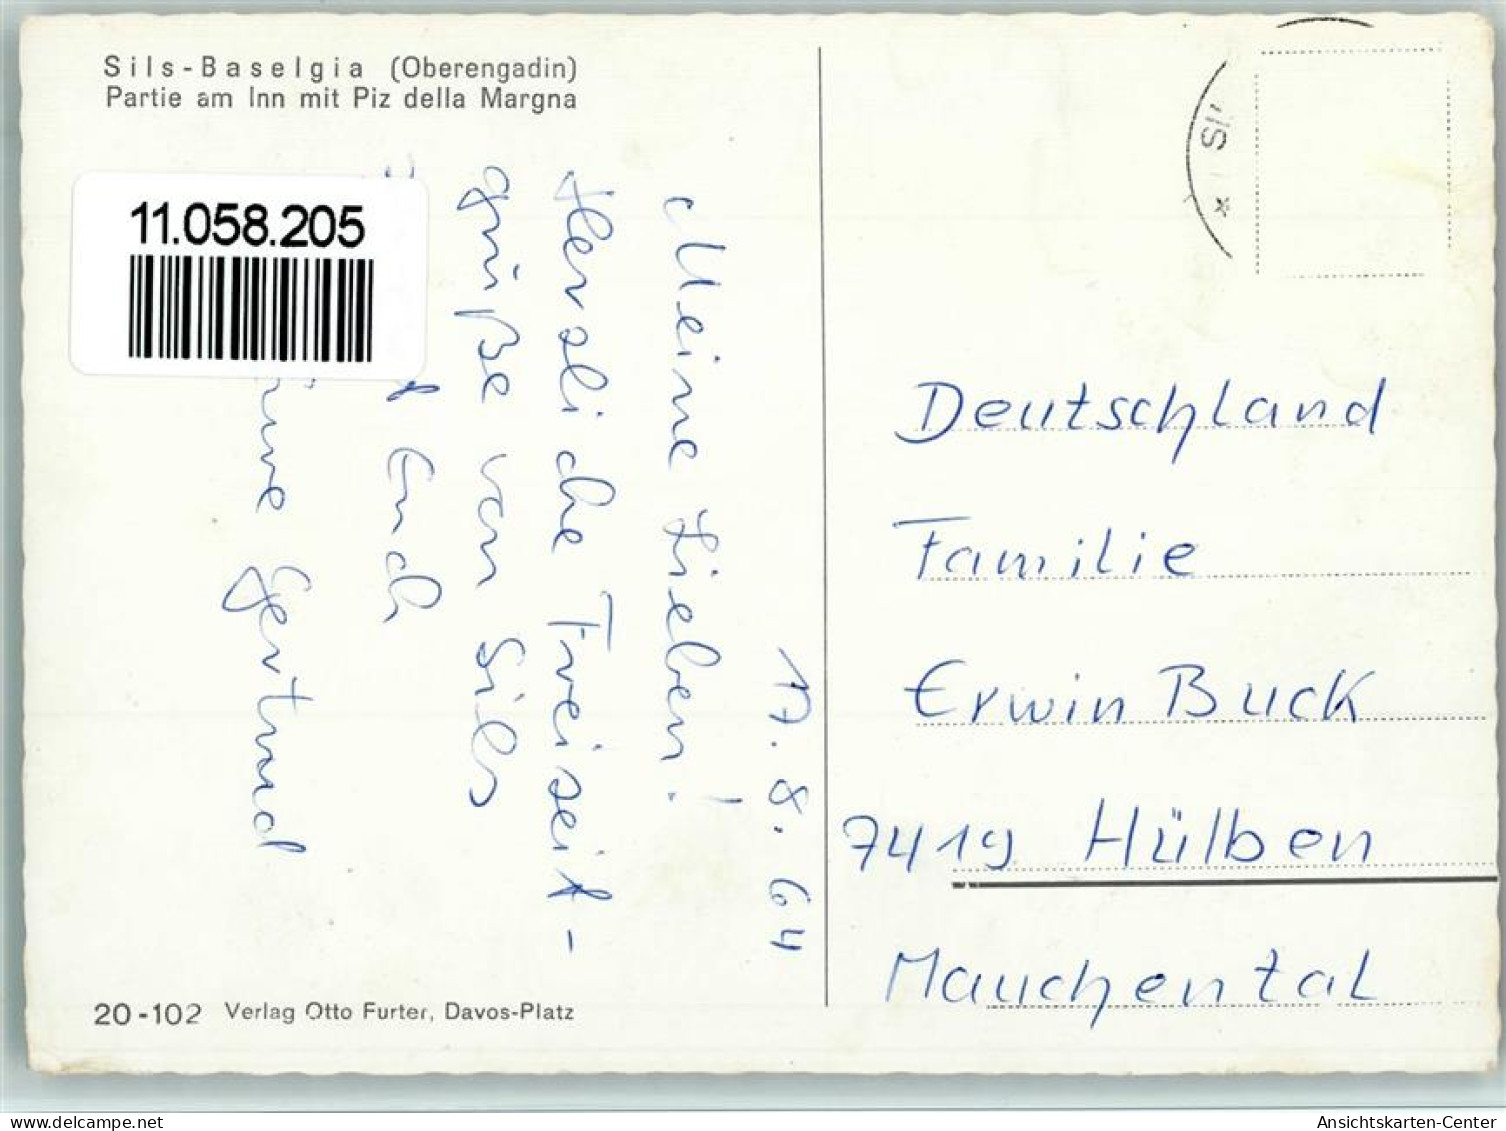 Sils-Baselgia (Oberengadin)
Partie am Inn mit Piz della Margna
11.058.205
17. 8. 64
Meine Lieben!
Herzliche Freizeit-
grüße von Sils
Euch
Gertrud
SIL
*
Deutschland
Familie
Erwin Buck
7419 Hülben
Mauchental
20-102 Verlag Otto Furter, Davos-Platz
oldthing.de
Ansichtskarten-Center